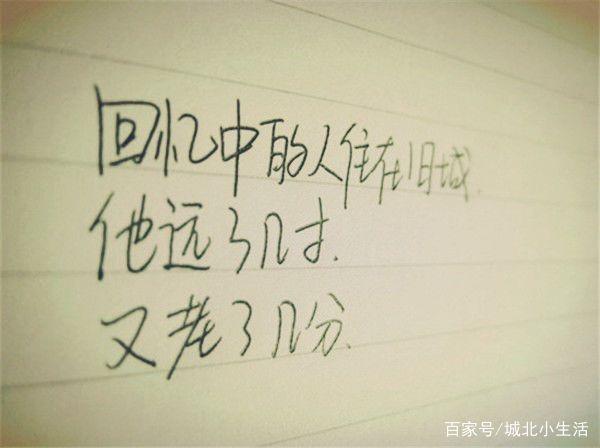 回忆中的人住在旧城.
他远了几寸.
又老了几分.
百家号/城北小生活